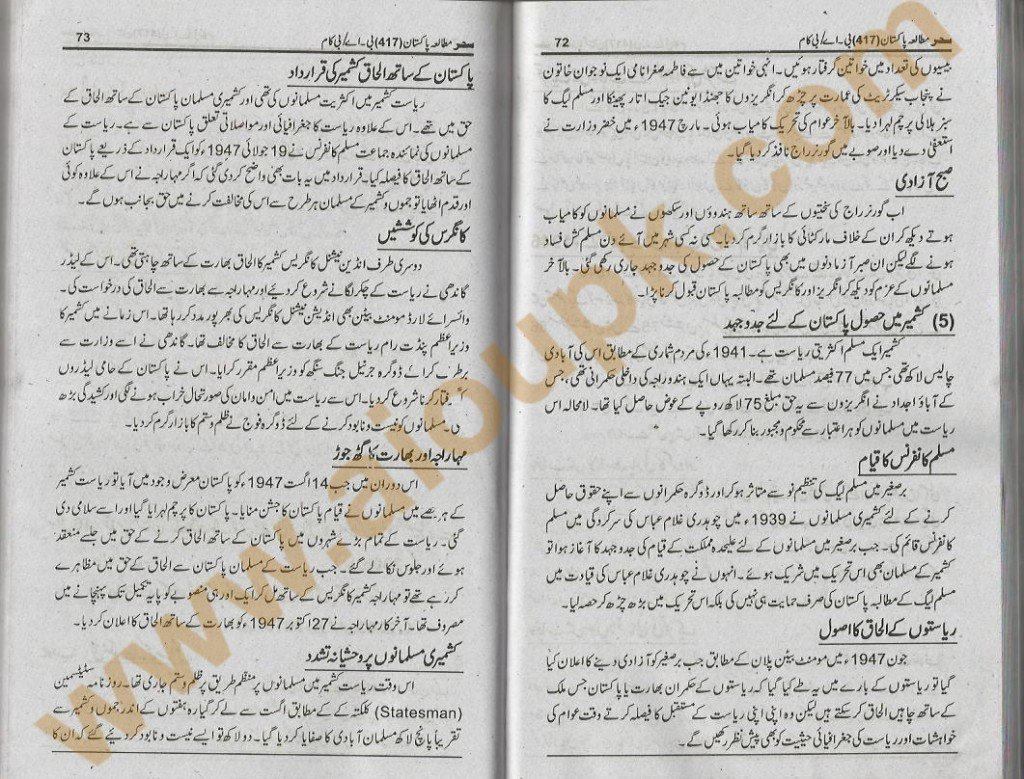 سحر مطالعہ پاکستان (417) بی۔اے/بی کام 72
بیسیوں کی تعداد میں خواتین گرفتار ہوئیں۔ انہی خواتین میں سے فاطمہ صغرا نامی ایک نوجوان خاتون
نے پنجاب سیکرٹریٹ کی عمارت پر چڑھ کر انگریزوں کا جھنڈا یونین جیک اتار پھینکا اور مسلم لیگ کا
سبز ہلالی پرچم لہرا دیا۔ بالآخر عوام کی تحریک کامیاب ہوئی۔ مارچ 1947ء میں خضر وزارت نے
استعفیٰ دے دیا اور صوبے میں گورنر راج نافذ کر دیا گیا۔
صبح آزادی
اب گورنر راج کی سختیوں کے ساتھ ساتھ ہندوؤں اور سکھوں نے مسلمانوں کو کامیاب
ہوتے دیکھ کر ان کے خلاف مار کٹائی کا بازار گرم کر دیا۔ کسی نہ کسی شہر میں آئے دن مسلم کش فساد
ہونے لگے لیکن ان صبر آزما دنوں میں بھی پاکستان کے حصول کی جدوجہد جاری رکھی گئی۔ بالآخر
مسلمانوں کے عزم کو دیکھ کر انگریز اور کانگریس کو مطالبہ پاکستان قبول کرنا پڑا۔
(5) کشمیر میں حصول پاکستان کے لئے جدوجہد
کشمیر ایک مسلم اکثریتی ریاست ہے۔ 1941ء کی مردم شماری کے مطابق اس کی آبادی
چالیس لاکھ تھی جس میں 77 فیصد مسلمان تھے۔ البتہ یہاں ایک ہندو راجہ کی داخلی حکمرانی تھی، جس
کے آباؤ اجداد نے انگریزوں سے یہ حق مبلغ 75 لاکھ روپے کے عوض حاصل کیا تھا۔ لامحالہ اس
ریاست میں مسلمانوں کو ہر اعتبار سے محکوم و مجبور بنا کر رکھا گیا۔
مسلم کانفرنس کا قیام
برصغیر میں مسلم لیگ کی تنظیم نو سے متاثر ہو کر اور ڈوگرہ حکمرانوں سے اپنے حقوق حاصل
کرنے کے لئے کشمیری مسلمانوں نے 1939ء میں چوہدری غلام عباس کی سرکردگی میں مسلم
کانفرنس قائم کی۔ جب برصغیر میں مسلمانوں کے لئے علیحدہ مملکت کے قیام کی جدوجہد کا آغاز ہوا تو
کشمیر کے مسلمان بھی اس تحریک میں شریک ہوئے۔ انہوں نے چوہدری غلام عباس کی قیادت میں
مسلم لیگ کے مطالبہ پاکستان کی صرف حمایت ہی نہیں کی بلکہ اس تحریک میں بڑھ چڑھ کر حصہ لیا۔
ریاستوں کے الحاق کا اصول
جون 1947ء میں مومنٹ بیٹن پلان کے مطابق جب برصغیر کو آزادی دینے کا اعلان کیا
گیا تو ریاستوں کے بارے میں یہ طے کیا گیا کہ ریاستوں کے حکمران بھارت یا پاکستان جس ملک
کے ساتھ چاہیں الحاق کر سکتے ہیں لیکن وہ اپنی اپنی ریاست کے مستقبل کا فیصلہ کرتے وقت عوام کی
خواہشات اور ریاست کی جغرافیائی حیثیت کو بھی پیش نظر رکھیں گے۔
سحر مطالعہ پاکستان (417) بی۔اے/بی کام 73
پاکستان کے ساتھ الحاق کشمیر کی قرارداد
ریاست کشمیر میں اکثریت مسلمانوں کی تھی اور کشمیری مسلمان پاکستان کے ساتھ الحاق کے
حق میں تھے۔ اس کے علاوہ ریاست کا جغرافیائی اور مواصلاتی تعلق پاکستان سے ہے۔ ریاست کے
مسلمانوں کی نمائندہ جماعت مسلم کانفرنس نے 19 جولائی 1947 کو ایک قرارداد کے ذریعے پاکستان
کے ساتھ الحاق کا فیصلہ کیا۔ قرارداد میں یہ بات بھی واضح کر دی گئی کہ اگر مہاراجہ نے اس کے علاوہ کوئی
اور قدم اٹھایا تو جموں و کشمیر کے مسلمان ہر طرح سے اس کی مخالفت کرنے میں حق بجانب ہوں گے۔
کانگرس کی کوششیں
دوسری طرف انڈین نیشنل کانگریس کشمیر کا الحاق بھارت کے ساتھ چاہتی تھی۔ اس کے لیڈر
گاندھی نے ریاست کے چکر لگانے شروع کر دیئے اور مہاراجہ سے بھارت سے الحاق کی درخواست کی۔
وائسرائے لارڈ مومنٹ بیٹن بھی انڈیشن نیشنل کانگریس کی بھرپور مدد کر رہا تھا۔ اس زمانے میں کشمیر کا
وزیراعظم پنڈت رام ریاست کے بھارت سے الحاق کا مخالف تھا۔ گاندھی نے اسے وزارت سے
برطرف کرا کے ڈوگرہ جرنیل جنگ سنگھ کو وزیراعظم مقرر کرا لیا۔ اس نے پاکستان کے حامی لیڈروں
فتار کرنا شروع کر دیا۔ اس سے ریاست میں امن و امان کی صورتحال خراب ہونے لگی اور کشیدگی بڑھ
ی۔ مسلمانوں کو نیست و نابود کرنے کے لئے ڈوگرہ فوج نے ظلم و ستم کا بازار گرم کر دیا۔
مہاراجہ اور بھارت کا گٹھ جوڑ
اس دوران میں جب 14 اگست 1947 کو پاکستان معرض وجود میں آیا تو ریاست کشمیر
کے ہر حصے میں مسلمانوں نے قیام پاکستان کا جشن منایا۔ پاکستان کا پرچم لہرایا گیا اور اسے سلامی دی
گئی۔ ریاست کے تمام بڑے شہروں میں پاکستان کے ساتھ الحاق کرنے کے حق میں جلسے منعقد
ہوئے اور جلوس نکالے گئے۔ جب ریاست کے مسلمان پاکستان سے الحاق کے حق میں مظاہرے
کر رہے تھے تو مہاراجہ کشمیر کانگریس کے ساتھ مل کر ایک اور ہی منصوبے کو پایہ تکمیل تک پہنچانے میں
مصروف تھا۔ آخر کار مہاراجہ نے 27 اکتوبر 1947 کو بھارت کے ساتھ الحاق کا اعلان کر دیا۔
کشمیری مسلمانوں پر وحشیانہ تشدد
اس وقت ریاست کشمیر میں مسلمانوں پر منظم طریق پر ظلم و ستم جاری تھا۔ روزنامہ سٹیٹسمین
(Statesman) کلکتہ کے کے مطابق اگست سے لے کر گیارہ ہفتوں کے اندر جموں و کشمیر سے
تقریباً پانچ لاکھ مسلمان آبادی کا صفایا کر دیا گیا۔ دو لاکھ تو ایسے نیست و نابود کر دیئے گئے کہ ان کا
www.aioupk.com